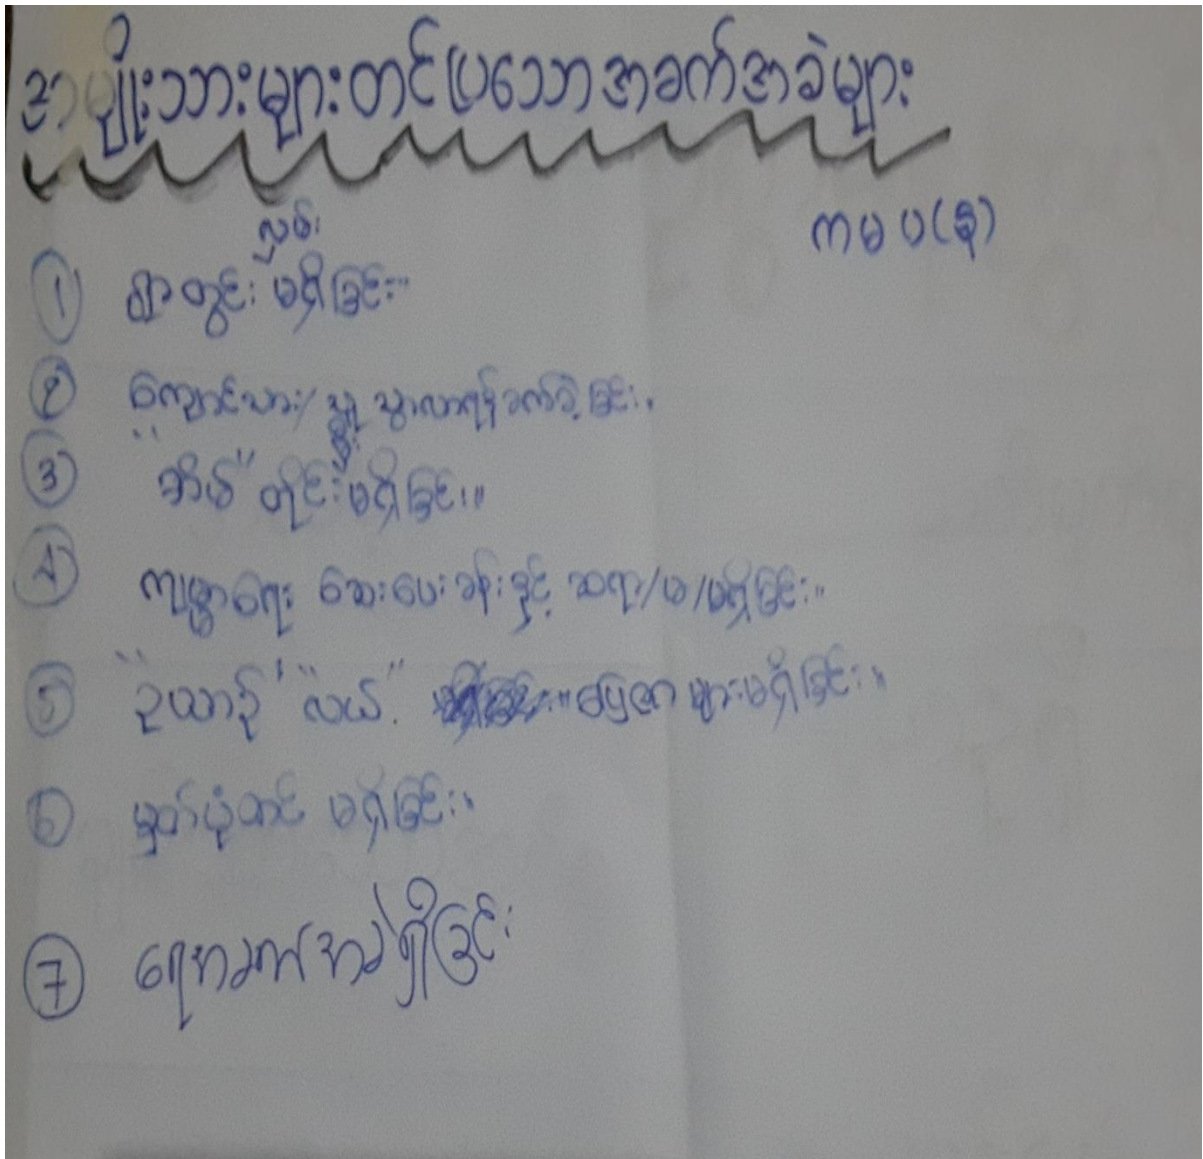 အမျိုးသားများတင်ပြသောအခက်အခဲများ
ကမပ(နု)
လမ်း
① ရွာတွင်း မရှိခြင်း။
② ကျောင်းသား/သူ သွားလာရန်ခက်ခဲခြင်း။
③ "အိမ်" တိုင်း မရှိခြင်း။
④ ကျမ္မာရေး ဆေးပေးခန်းနှင့် ဆရာ/မ/မရှိခြင်း။
⑤ "ဥယာဉ်" "လယ်" မြေဇာ များမရှိခြင်း။
⑥ မှတ်ပုံတင် မရှိခြင်း။
⑦ ရေအခက်အခဲရှိခြင်း